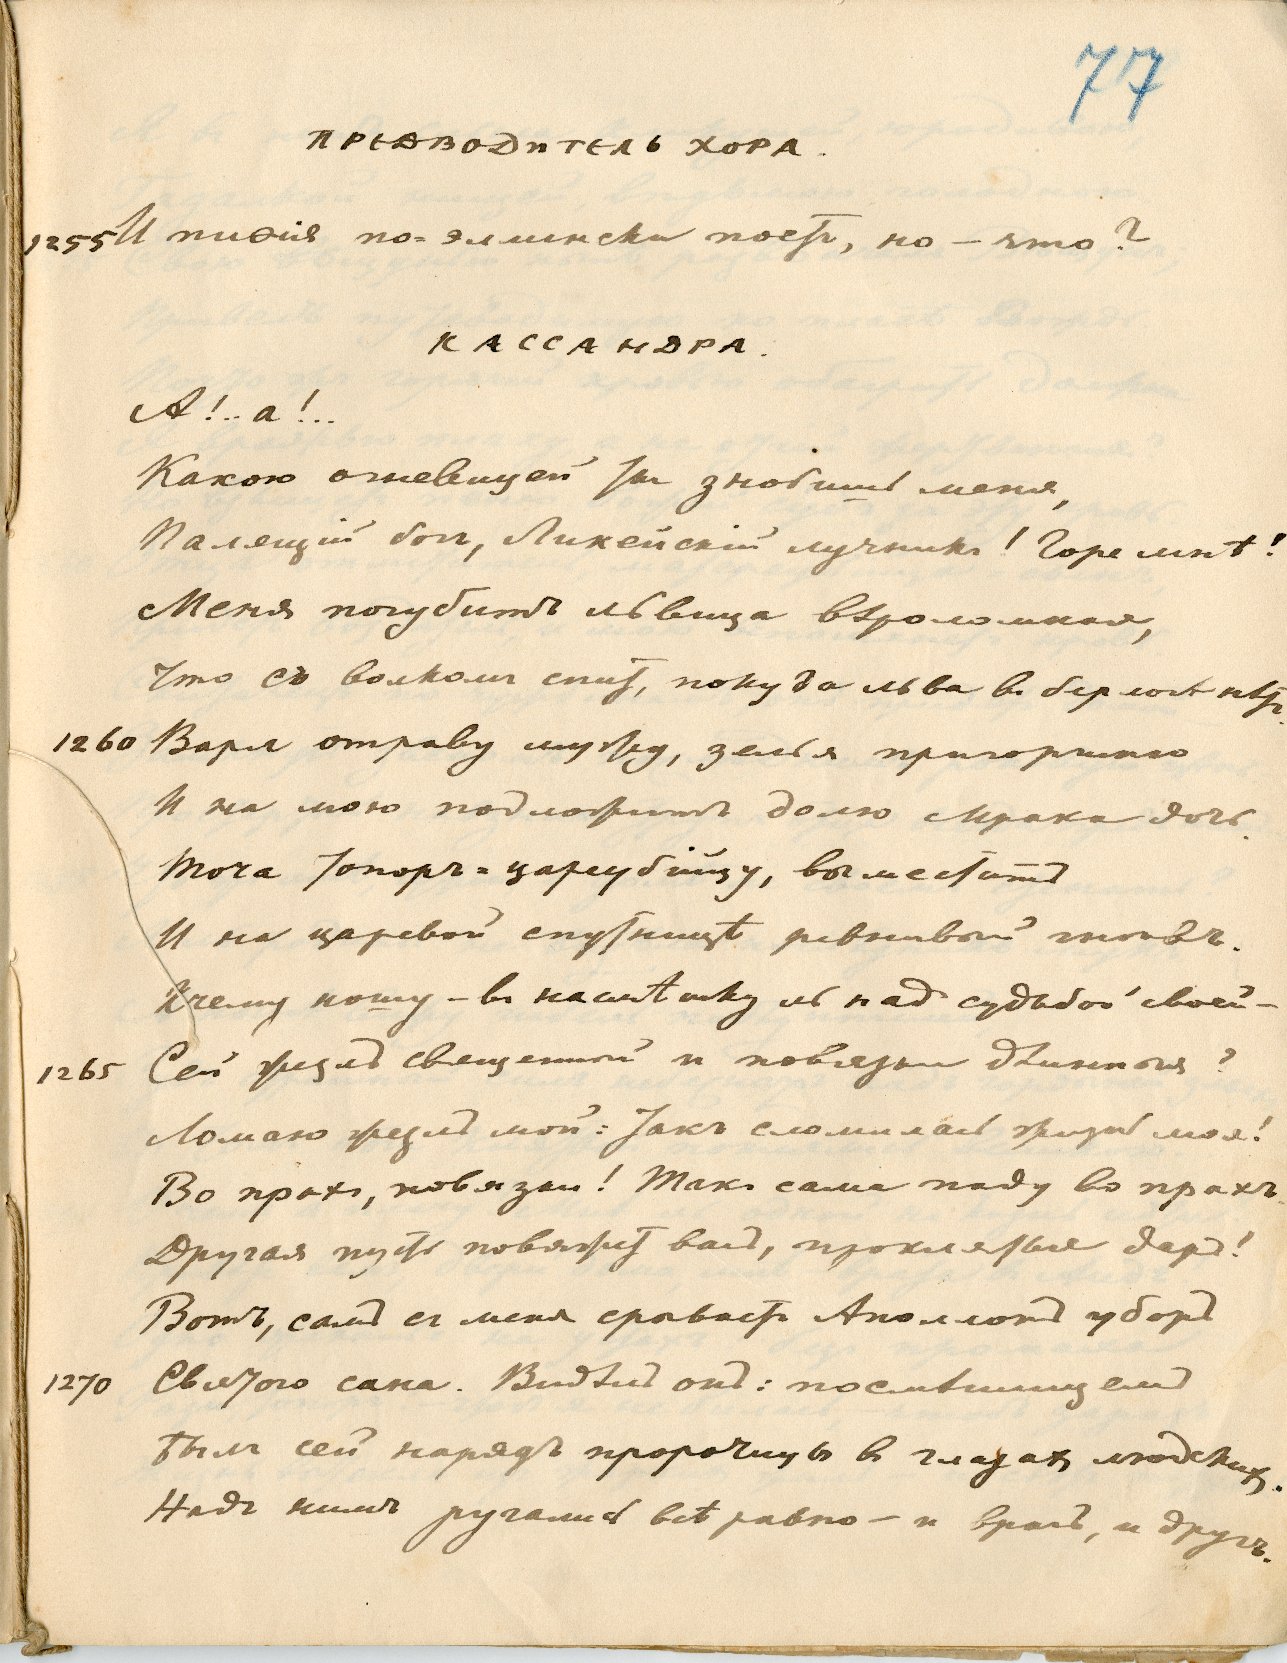 77
ПРЕДВОДИТЕЛЬ ХОРА.
1255 И пиѳія по-эллински поетъ, но – что?
КАССАНДРА.
А!.. а!..
Какою огневицей ты знобишь меня,
Палящій богъ, Ликейскій лучникъ! Горе мнѣ!
Меня погубитъ львица вѣроломная,
Что съ волкомъ спитъ, покуда льва въ берлогѣ нѣтъ.
1260 Варя отраву мужу, зелья пригоршню
И на мою подложитъ долю мрака дочь.
Точа топоръ-цареубійцу, выместитъ
И на царевой спутницѣ ревнивый гнѣвъ.
Къ чему ношу – въ насмѣшку ль надъ судьбой своей –
1265 Сей жезлъ священный и повязки длинныя?
Ломаю жезлъ мой: такъ сломилась жизнь моя!
Во прахъ, повязки! Такъ сама паду во прахъ.
Другая пусть повяжетъ васъ, проклятый даръ!
Вотъ, самъ съ меня срываетъ Аполлонъ уборъ
1270 Святого сана. Видѣлъ онъ: посмѣшищемъ
Былъ сей нарядъ пророчицы въ глазахъ людскихъ.
Надъ нимъ ругались всѣ равно – и врагъ, и другъ.